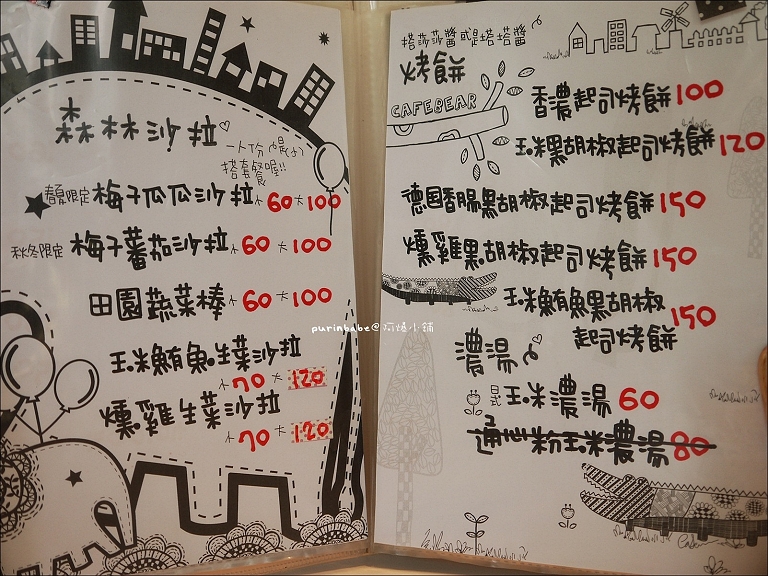 森林沙拉♡
一人份
搭套餐喔!!
春夏限定 梅子瓜瓜沙拉 小60 大100
秋冬限定 梅子蕃茄沙拉 小60 大100
田園蔬菜棒 小60 大100
玉米鮪魚生菜沙拉
小70 大120
燻雞生菜沙拉
小70 大120
搭莎莎醬或是塔塔醬
烤餅
CAFEBEAR
香濃起司烤餅100
玉米黑胡椒起司烤餅120
德国香腸黑胡椒起司烤餅150
燻雞黑胡椒起司烤餅150
玉米鮪魚黑胡椒
起司烤餅150
濃湯
日式玉米濃湯60
通心粉玉米濃湯80
purinbabe@阿燈小舖